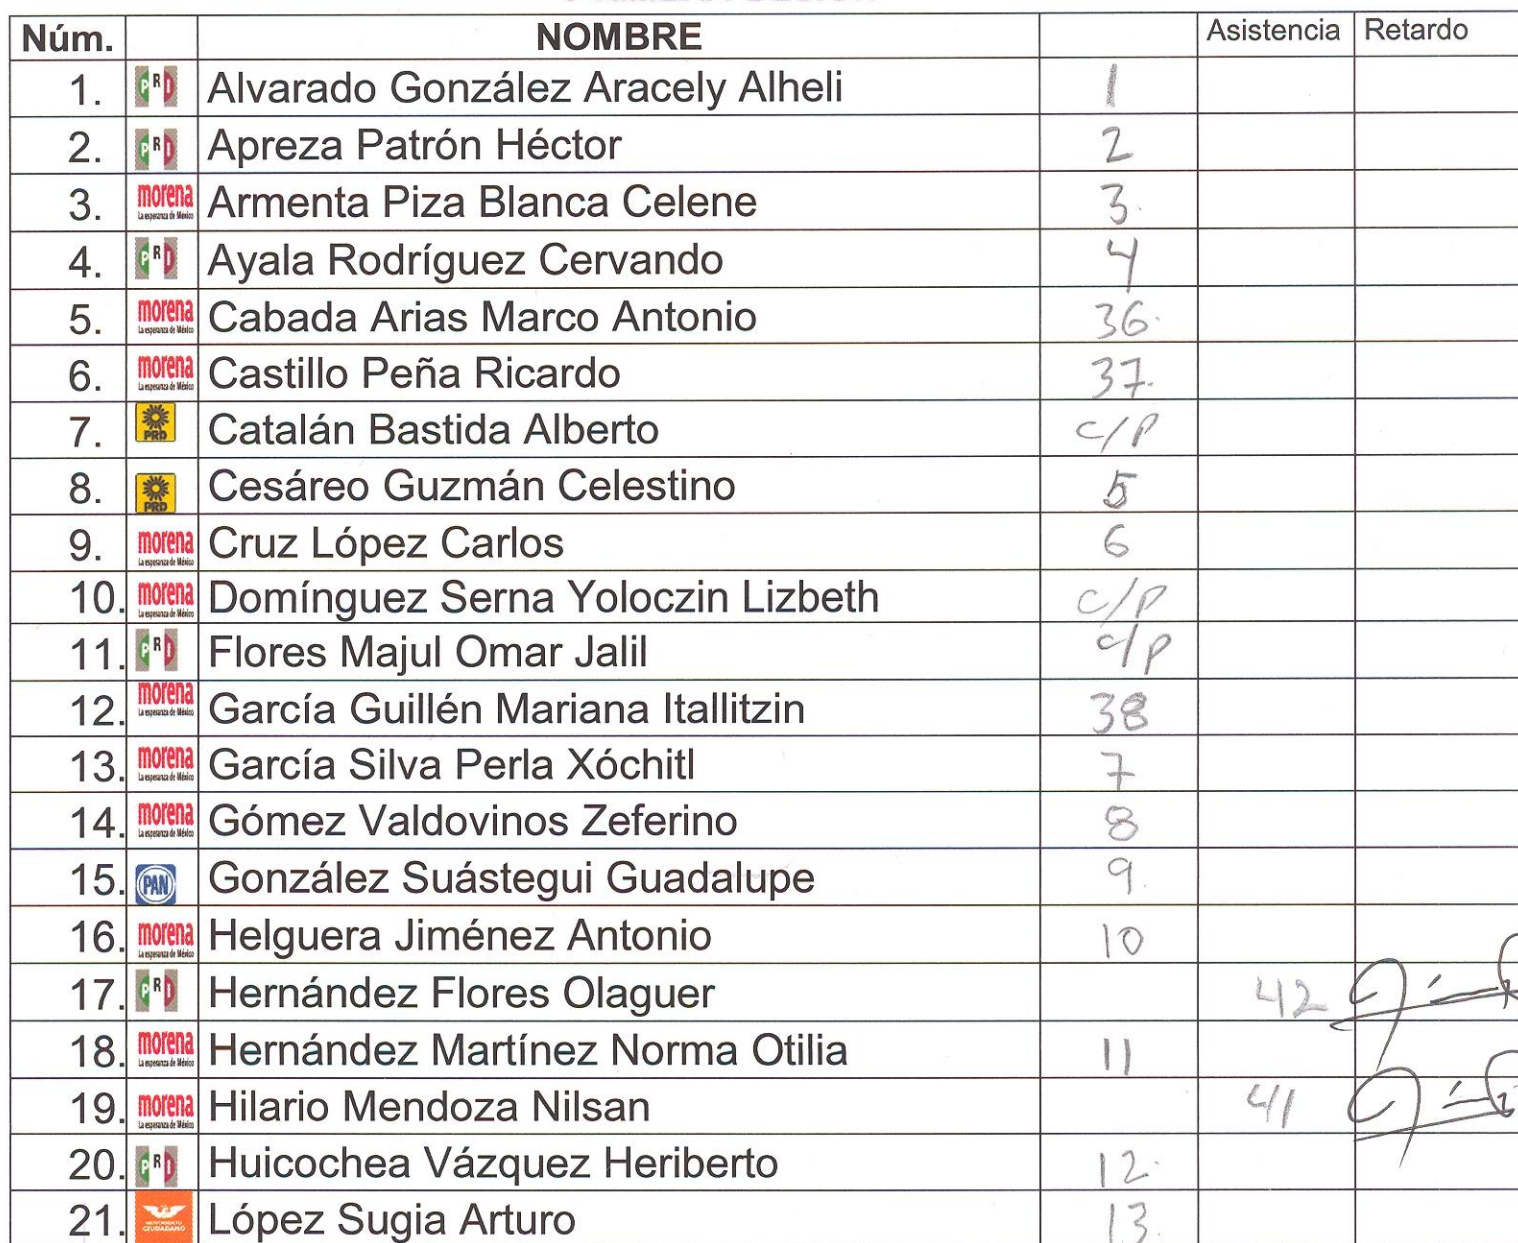 Núm. NOMBRE Asistencia Retardo
1. PRI Alvarado González Aracely Alheli 1
2. PRI Apreza Patrón Héctor 2
3. morena La esperanza de México Armenta Piza Blanca Celene 3.
4. PRI Ayala Rodríguez Cervando 4
5. morena La esperanza de México Cabada Arias Marco Antonio 36.
6. morena La esperanza de México Castillo Peña Ricardo 37.
7. PRD Catalán Bastida Alberto c/p
8. PRD Cesáreo Guzmán Celestino 5
9. morena La esperanza de México Cruz López Carlos 6
10. morena La esperanza de México Domínguez Serna Yoloczin Lizbeth c/p
11. PRI Flores Majul Omar Jalil c/p
12. morena La esperanza de México García Guillén Mariana Itallitzin 38
13. morena La esperanza de México García Silva Perla Xóchitl 7
14. morena La esperanza de México Gómez Valdovinos Zeferino 8
15. PAN González Suástegui Guadalupe 9.
16. morena La esperanza de México Helguera Jiménez Antonio 10
17. PRI Hernández Flores Olaguer 42
18. morena La esperanza de México Hernández Martínez Norma Otilia 11
19. morena La esperanza de México Hilario Mendoza Nilsan 41
20. PRI Huicochea Vázquez Heriberto 12.
21. MOVIMIENTO CIUDADANO López Sugia Arturo 13.